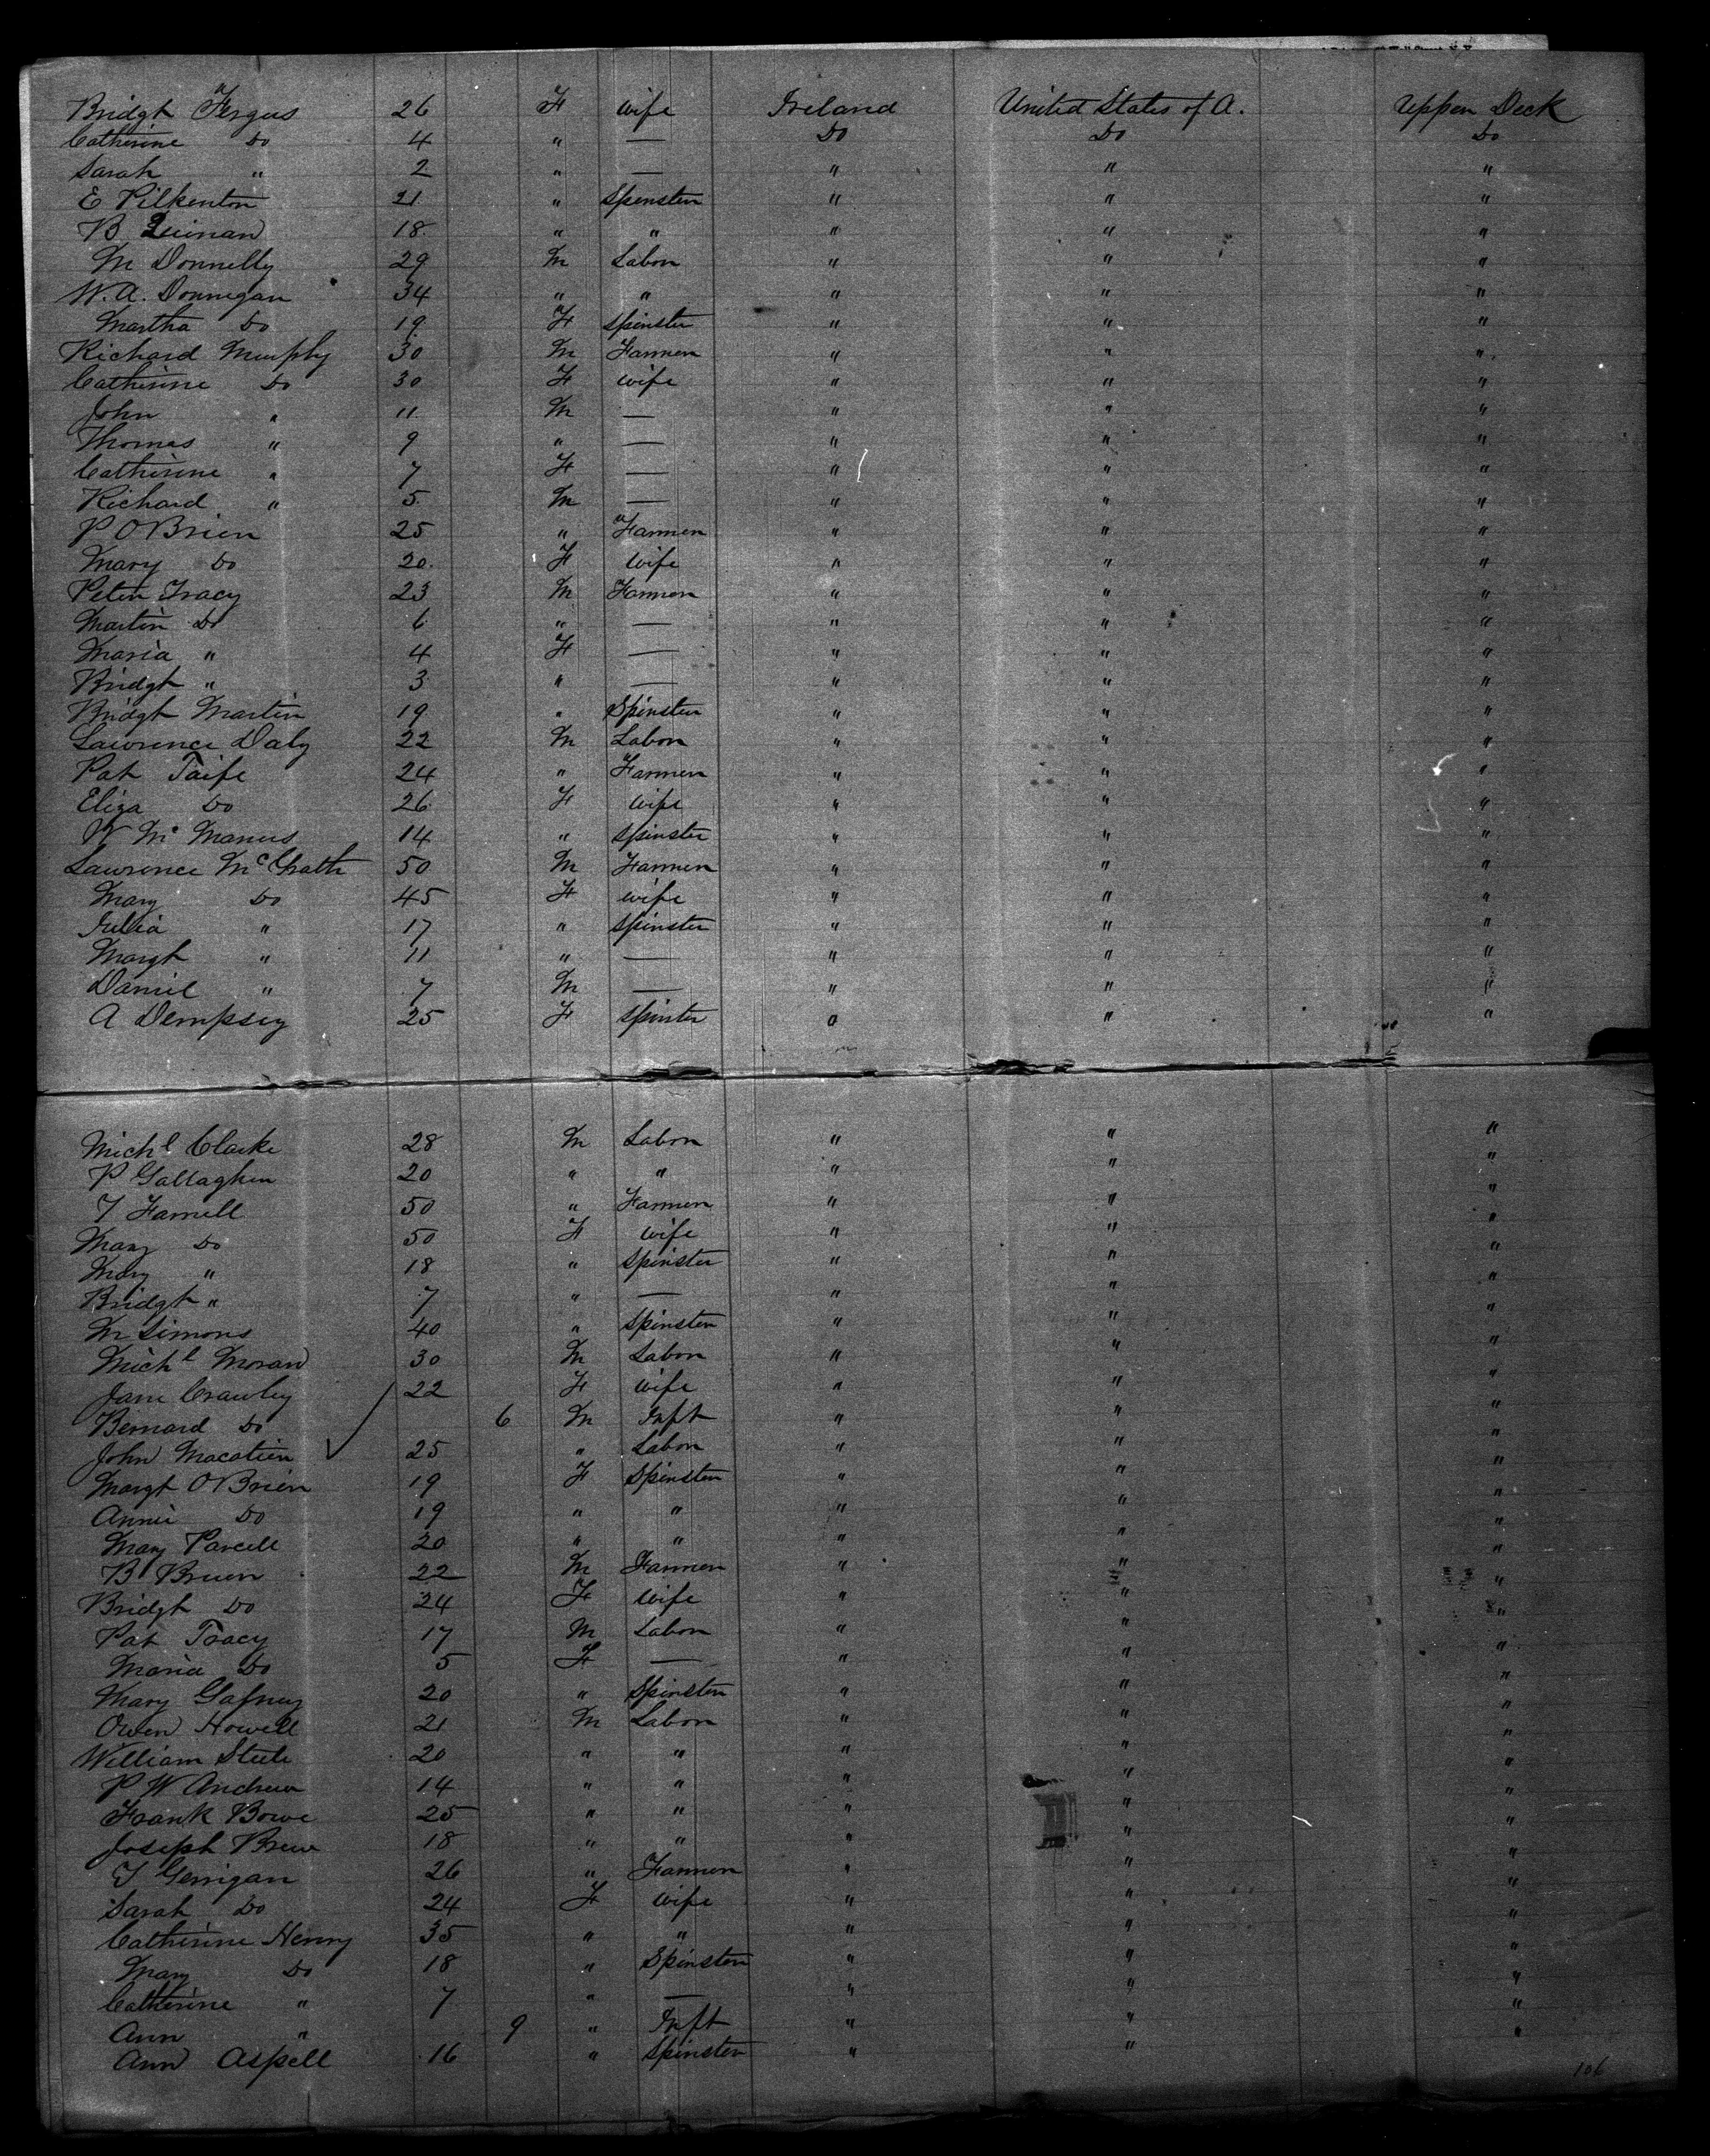 Bridgt Fergus 26 F wife Ireland United States of A. Upper Deck
Catherine Do 4 " — Do Do Do
Sarah " 2 " — " " "
E Pilkenton 21 " Spinster " " "
B Quinan 18 " " " " "
M Donnelly 29 M Labor " " "
W. A. Donnegan 34 " " " " "
Martha Do 19 F Spinster " " "
Richard Murphy 30 M Farmer " " "
Catherine Do 30 F wife " " "
John " 11 M — " " "
Thomas " 9 " — " " "
Catherine " 7 F — " " "
Richard " 5 M — " " "
P O'Brien 25 " Farmer " " "
Mary Do 20 F wife " " "
Peter Tracy 23 M Farmer " " "
Martin Do 6 " — " " "
Maria " 4 F — " " "
Bridgt " 3 " — " " "
Bridgt Martin 19 " Spinster " " "
Lawrence Daly 22 M Labor " " "
Pat Taife 24 " Farmer " " "
Eliza Do 26 F wife " " "
W Mc Manus 14 " Spinster " " "
Lawrence McGrath 50 M Farmer " " "
Mary Do 45 F wife " " "
Julia " 17 " Spinster " " "
Margt " 11 " — " " "
Daniel " 7 M — " " "
A Dempsey 25 F Spinster " " "
Michl Clarke 28 M Labor " " "
P Gallagher 20 " " " " "
T Farrell 50 " Farmer " " "
Mary Do 50 F wife " " "
Mary " 18 " Spinster " " "
Bridgt " 7 " — " " "
M Simons 40 " Spinster " " "
Michl Moran 30 M Labor " " "
Jane Crawley 22 F wife " " "
Bernard Do 6 M Inft " " "
John Macatien 25 " Labor " " "
Margt O'Brien 19 F Spinster " " "
Annie Do 19 " " " " "
Mary Parcell 20 " " " " "
B Bruen 22 M Farmer " " "
Bridgt Do 24 F wife " " "
Pat Tracy 17 M Labor " " "
Maria Do 5 F — " " "
Mary Gafney 20 " Spinster " " "
Owen Howell 21 M Labor " " "
William Steele 20 " " " " "
P W Andrew 14 " " " " "
Frank Bowe 25 " " " " "
Joseph Brew 18 " " " " "
T Gerrigan 26 " Farmer " " "
Sarah Do 24 F wife " " "
Catherine Henry 35 " " " " "
Mary Do 18 " Spinster " " "
Catherine " 7 " — " " "
Ann " 9 " Inft " " "
Ann Aspell 16 " Spinster " "
106